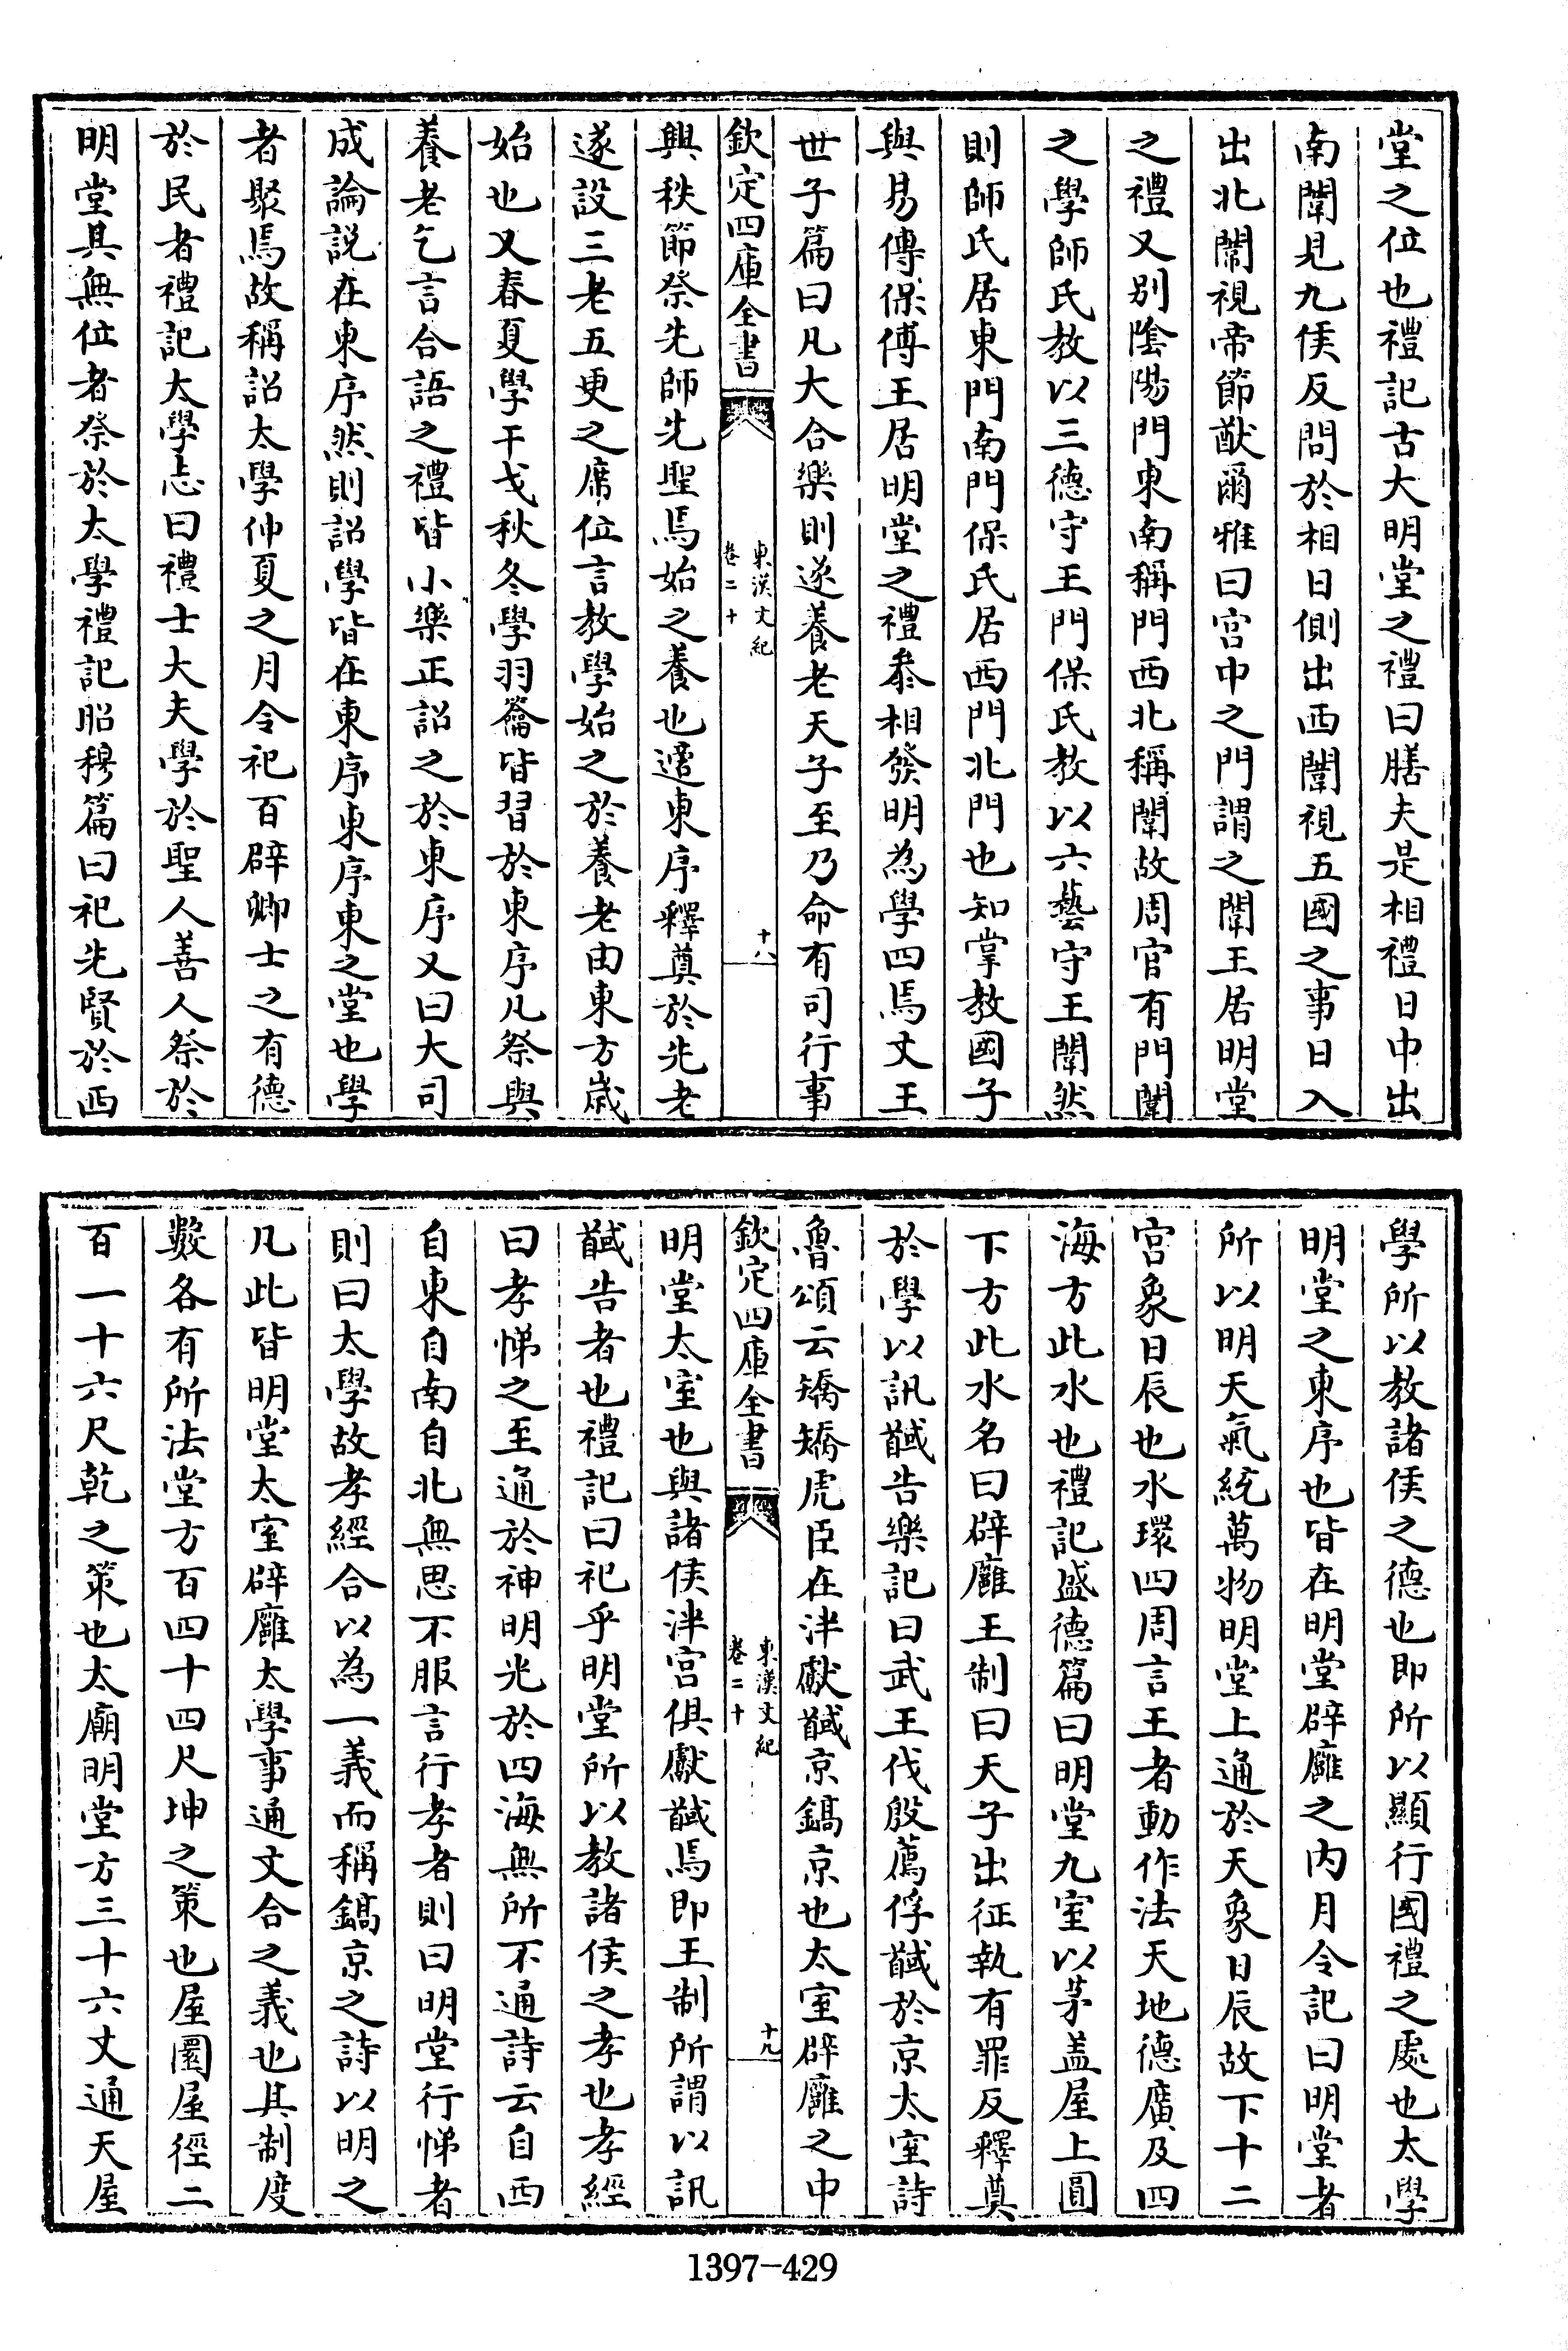 堂之位也禮記古大明堂之禮曰膳夫是相禮日中出
南闈見九侯反問於相日側出西闈視五國之事日入
出北闈視帝節猷爾雅曰宫中之門謂之闈王居明堂
之禮又别隂陽門東南稱門西北稱闈故周官有門闈
之學師氏教以三德守王門保氏教以六藝守王闈然
則師氏居東門南門保氏居西門北門也知掌教國子
與易傳保傅王居明堂之禮叅相發明為學四焉文王
世子篇曰凡大合樂則遂養老天子至乃命有司行事
欽定四庫全書
東漢文紀
卷二十
十八
興秩節祭先師先聖焉始之養也適東序釋奠於先老
遂設三老五更之席位言教學始之於養老由東方歲
始也又春夏學干戈秋冬學羽籥皆習於東序凡祭與
養老乞言合語之禮皆小樂正詔之於東序又曰大司
成論説在東序然則詔學皆在東序東序東之堂也學
者聚焉故稱詔太學仲夏之月令祀百辟卿士之有德
於民者禮記太學志曰禮士大夫學於聖人善人祭於
明堂其無位者祭於太學禮記昭穆篇曰祀先賢於西
學所以教諸侯之德也即所以顯行國禮之處也太學
明堂之東序也皆在明堂辟廱之内月令記曰明堂者
所以明天氣統萬物明堂上通於天象日辰故下十二
宫象日辰也水環四周言王者動作法天地德廣及四
海方此水也禮記盛德篇曰明堂九室以茅盖屋上圓
下方此水名曰辟廱王制曰天子出征執有罪反釋奠
於學以訊馘告樂記曰武王伐殷薦俘馘於京太室詩
魯頌云矯矯虎臣在泮獻馘京鎬京也太室辟廱之中
欽定四庫全書
東漢文紀
卷二十
十九
明堂太室也與諸侯泮宫俱獻馘焉即王制所謂以訊
馘告者也禮記曰祀乎明堂所以教諸侯之孝也孝經
曰孝悌之至通於神明光於四海無所不通詩云自西
自東自南自北無思不服言行孝者則曰明堂行悌者
則曰太學故孝經合以為一義而稱鎬京之詩以明之
凡此皆明堂太室辟廱太學事通文合之義也其制度
數各有所法堂方百四十四尺坤之策也屋圜屋徑二
百一十六尺乾之策也太廟明堂方三十六丈通天屋
1397-429